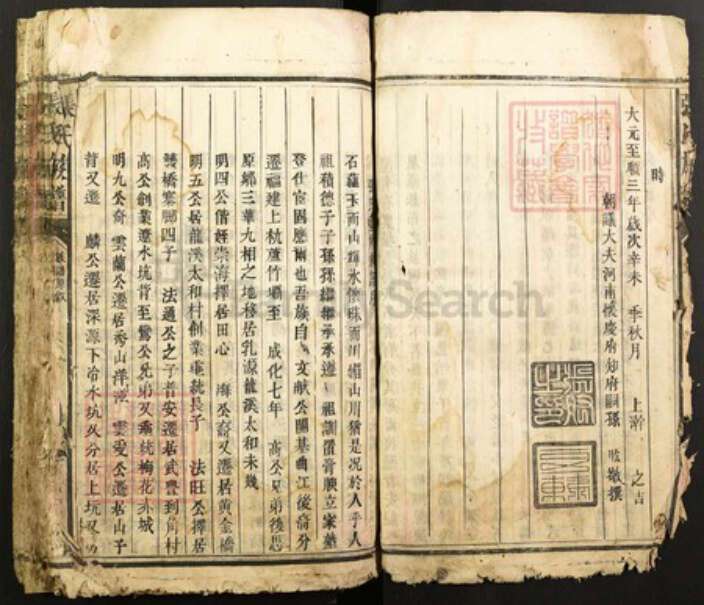 時
大元至順三年歲次辛未 季秋月 上澣 之吉
朝議大夫河南懷慶府知府嗣孫 敬撰
石蘊玉而山輝水懷珠而川媚山川猶是况於人乎人
祖積德子子孫孫繼繼承承遵 祖訓置膏腴立家
登仕宦固應爾也吾族自 文献公開基曲江後裔分
遷福建上杭蘆竹塘至 成化七年 高公兄弟後思
原鄉三華九相之地移居乳源龍溪太和未幾
明四公偕姪崇海擇居田心 海公裔又遷居黃金橋
明五公居龍溪太和村創業垂統長子 法旺公擇居
橋寨腳四子 法通公之子普安遷居武豐到貟村
高公創業遼水坑背至鸞公兄弟又垂統梅花赤城
明九公裔 雲蘭公遷居秀山洋 雲愛公遷居山子
背又遷 麟公遷居深源下冷水坑又分居上坑
張氏族譜
FamilySearch